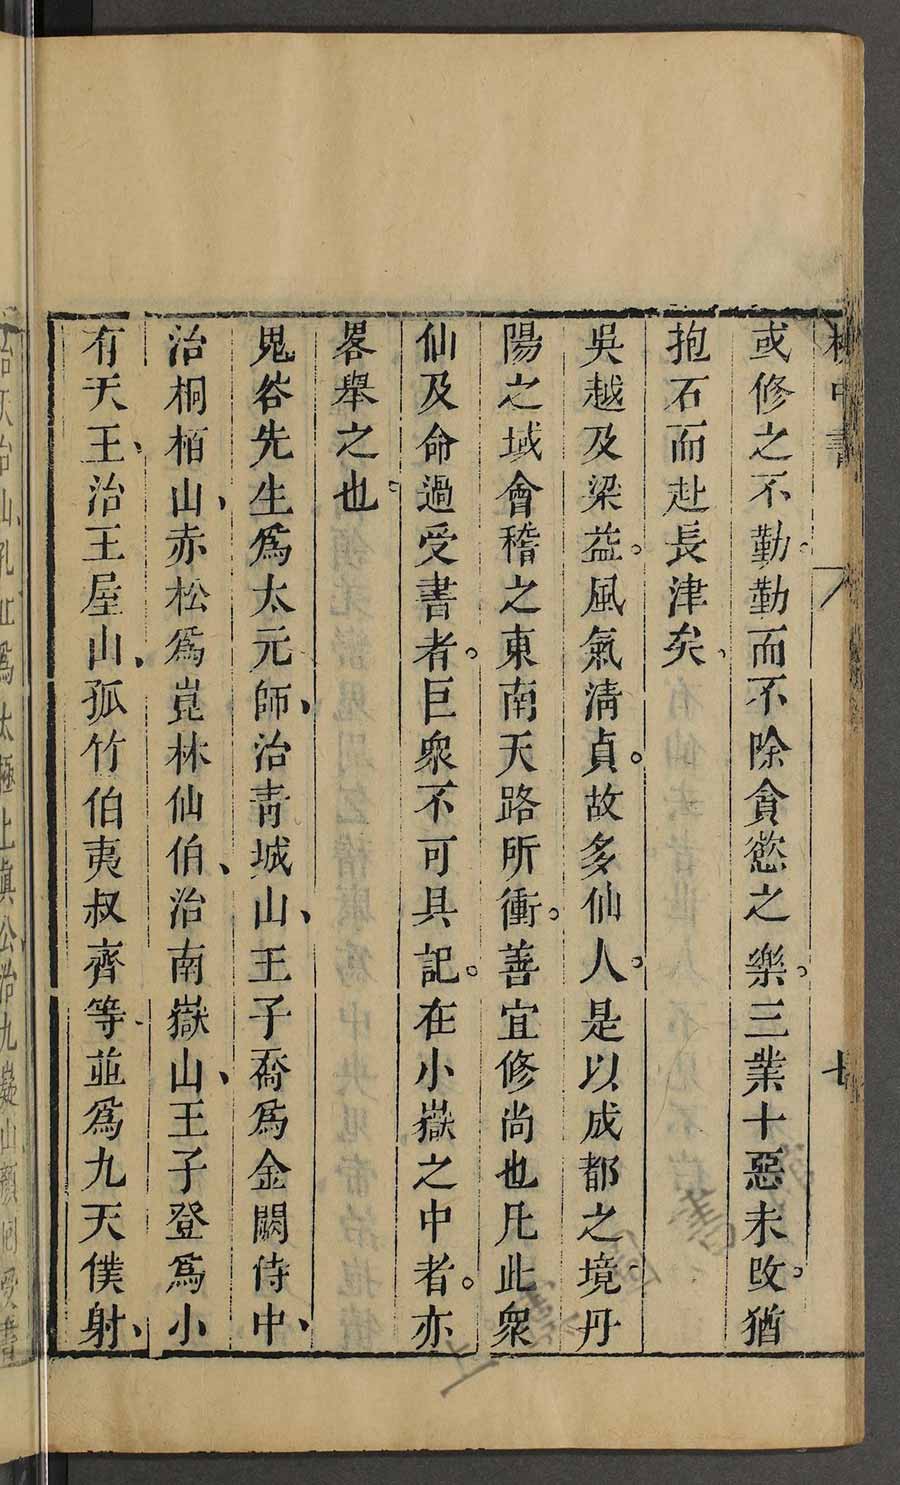 枕中書
七
或修之不勤。勤而不除貪慾之樂。三業十惡未改。猶
抱石而赴長津矣。
吳越及梁益。風氣清貞。故多仙人。是以成都之境丹
陽之域會稽之東南天路所衝。善宜修尚也凡此衆
仙及命過受書者。巨衆不可具記。在小嶽之中者。亦
畧舉之也。
鬼谷先生爲太元師、治青城山、王子喬爲金闕侍中、
治桐栢山、赤松爲崑林仙伯、治南嶽山、王子登爲小
有天王、治王屋山、孤竹伯夷叔齊等並爲九天僕射、
治天台山、孔丘爲太極上眞公治九嶷山顏回受書